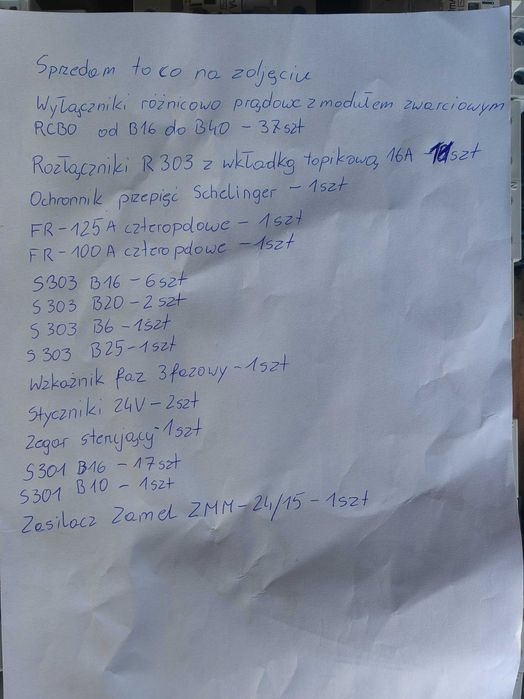 Sprzedam to co na zdjęciu
Wyłączniki różnicowo prądowe z modułem zwarciowym
RCBO od B16 do B40 - 37szt
Rozłączniki R303 z wkładką topikową 16A - szt
Ochronnik przepięć Schelinger - 1szt
FR-125A czteropolowe - 1szt
FR-100A czteropdowe - 1szt
S303 B16 - 6szt
S303 B20 - 2szt
S303 B6 - 1szt
S303 B25 - 1szt
Wzkaźnik faz 3fazowy - 1szt
Styczniki 24V - 2szt
Zegar sterujący - 1szt
S301 B16 - 17szt
S301 B10 - 1szt
Zasilacz Zamel ZMM-24/15 - 1szt